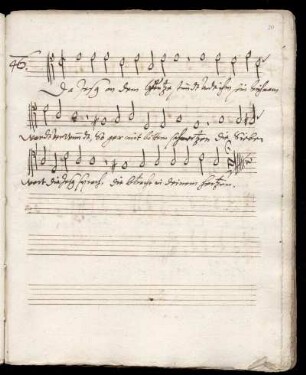 46.
Da Jesus an dem Creütze stundt und ihm sein Leichnam
wardt verwundt, so gar mit bittern schmertzen, die sieben
wort die Jesus sprach, die betracht in deinem hertzen.